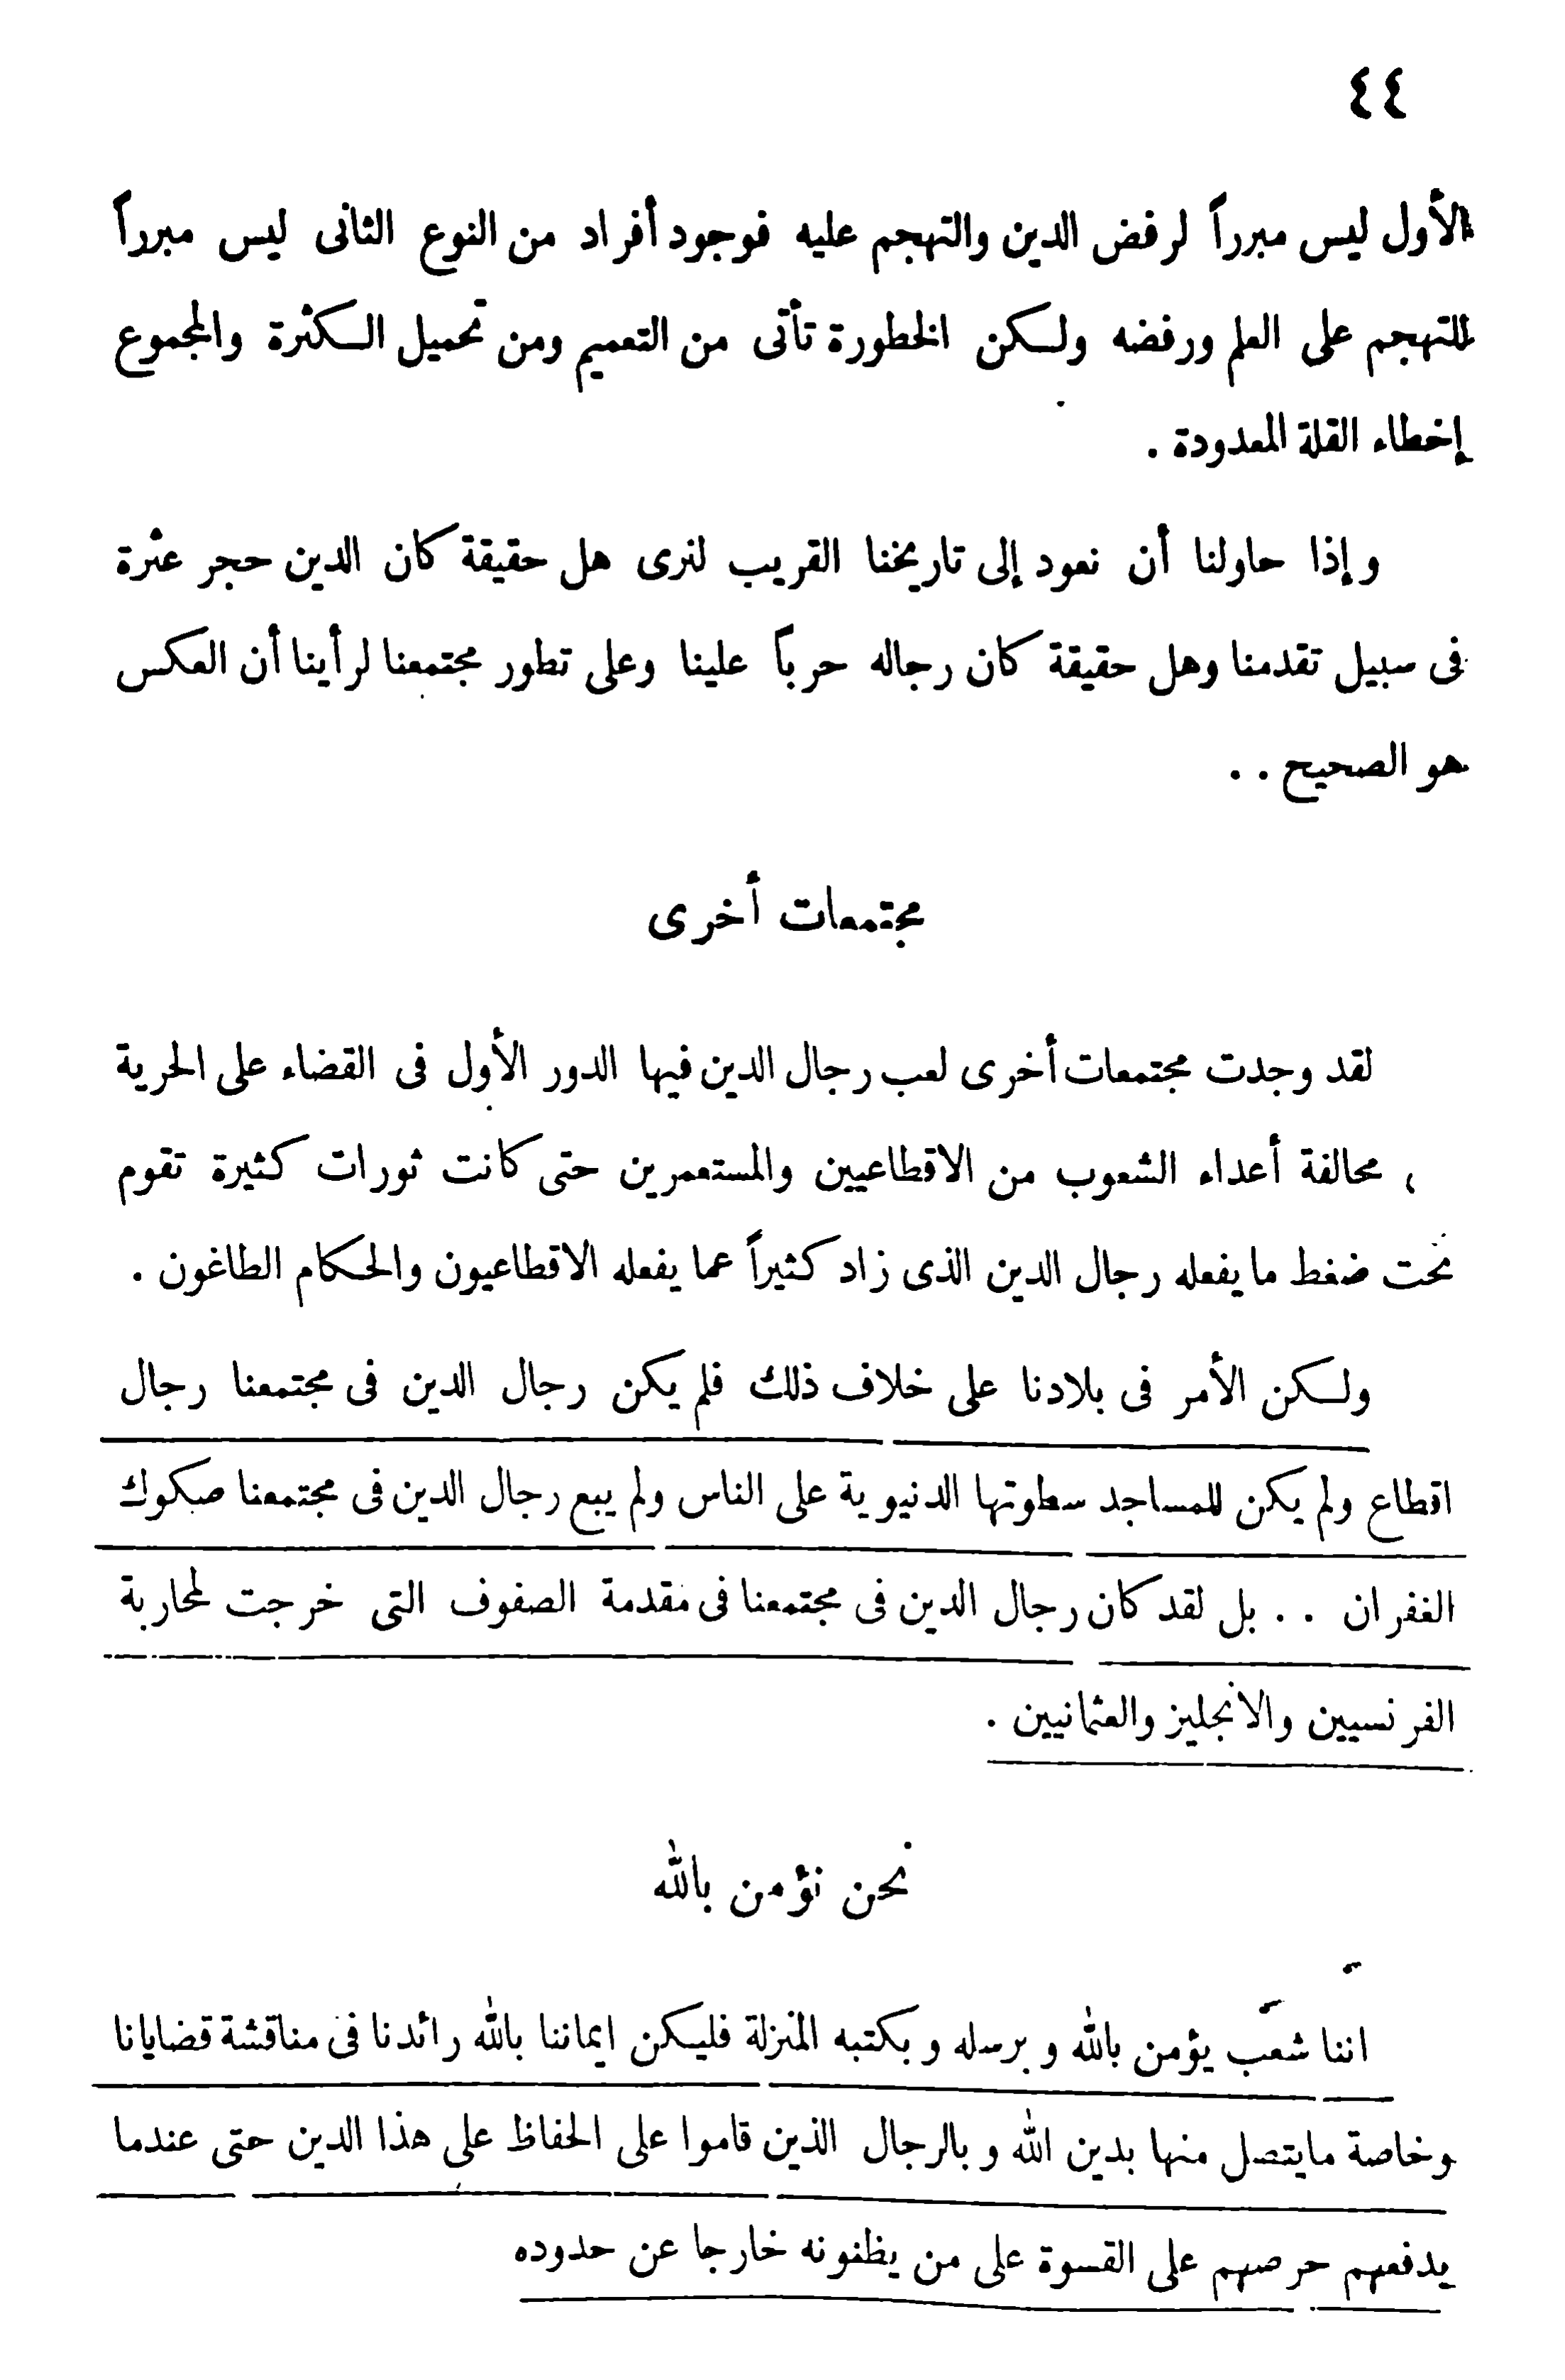 ٤٤
الأول ليس مبرراً لرفض الدين والتهجم عليه فوجود أفراد من النوع الثانى ليس مبرراً
للتهجم على العلم ورفضه ولكن الخطورة تأتى من التعميم ومن تحميل الكثرة والمجموع
إخطاء القلة المعدودة .
وإذا حاولنا أن نعود إلى تاريخنا القريب لنرى هل حقيقة كان الدين حجر عثرة
فى سبيل تقدمنا وهل حقيقة كان رجاله حرباً علينا وعلى تطور مجتمعنا لرأينا أن العكس
هو الصحيح . .
مجتمعات أخرى
لقد وجدت مجتمعات أخرى لعب رجال الدين فيها الدور الأول فى القضاء على الحرية
، محالفة أعداء الشعوب من الاقطاعيين والمستعمرين حتى كانت ثورات كثيرة تقوم
تحت ضغط ما يفعله رجال الدين الذى زاد كثيراً عما يفعله الاقطاعيون والحكام الطاغون .
ولكن الأمر فى بلادنا على خلاف ذلك فلم يكن رجال الدين فى مجتمعنا رجال
اقطاع ولم يكن للمساجد سطوتها الدنيوية على الناس ولم يبع رجال الدين فى مجتمعنا صكوك
الغفران . . بل لقد كان رجال الدين فى مجتمعنا فى مقدمة الصفوف التى خرجت لمحاربة
الفرنسيين والانجليز والعثمانيين .
نحن نؤمن بالله
اننا شعب يؤمن بالله وبرسله وبكتبه المنزلة فليكن ايماننا بالله رائدنا فى مناقشة قضايانا
وخاصة مايتصل منها بدين الله وبالرجال الذين قاموا على الحفاظ على هذا الدين حتى عندما
يدفعهم حرصهم على القسوة على من يظنونه خارجا عن حدوده